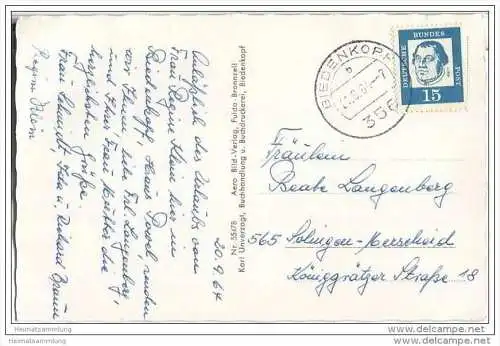 20.9.64
Anläßlich des Urlaubs von
Frau Regina Klein hier in
Biedenkopf, Haus Pavel, senden
wir Ihnen, liebe Frl. Langenberg,
und Ihrer Frau Mutter die
herzlichsten Grüße
Frau Schmidt, u. Richard
Regina Klein
Nr. 55478 Aero Bild-Verlag, Fulda-Bronnzell
Karl Unverzagt, Buchhandlung u. Buchdruckerei, Biedenkopf
BIEDENKOPF
356
DEUTSCHE BUNDES POST
15
Fräulein
Beate Langenberg
565 Solingen-Merscheid
Königgrätzer Straße 18
Heimatsammlung
Heimatsammlung